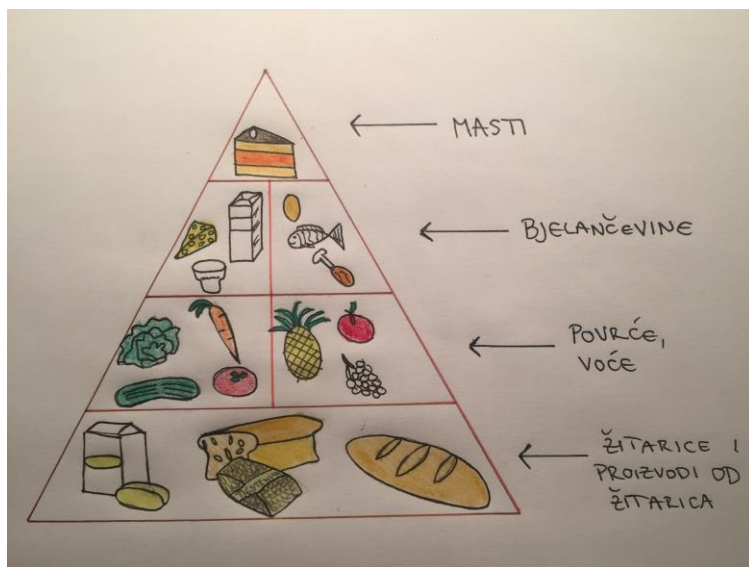 MASTI
BJELANČEVINE
POVRĆE,
VOĆE
ŽITARICE I
PROIZVODI OD
ŽITARICA